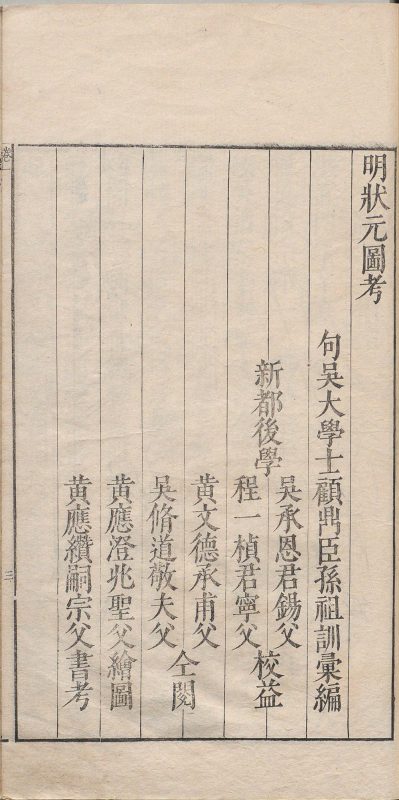 明狀元圖考
句吳大學士顧鼎臣孫祖訓彙編
吳承恩君錫父
新都後學
程一楨君寧父
校益
黃文德承甫父
吳脩道敬夫父
仝閱
黃應澄兆聖父繪圖
黃應纘嗣宗父書考
卷一
三